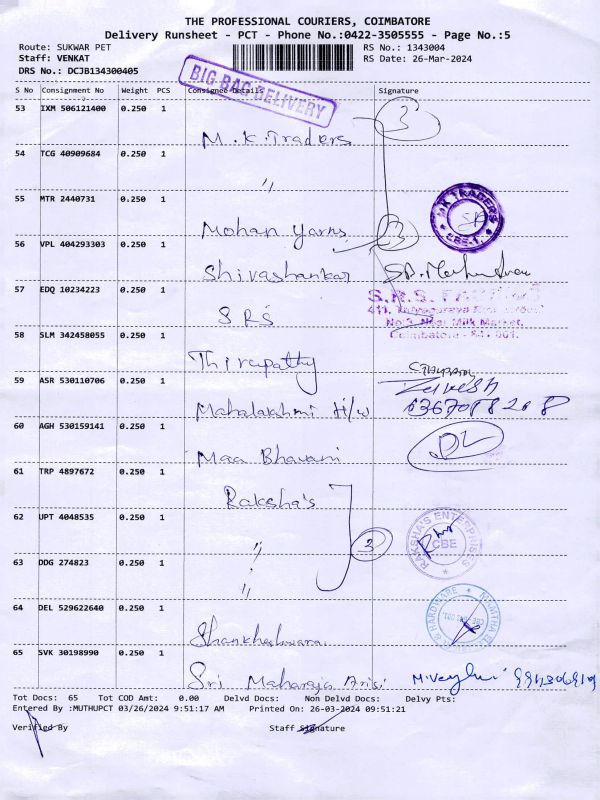 THE PROFESSIONAL COURIERS, COIMBATORE
Delivery Runsheet - PCT - Phone No.:0422-3505555 - Page No.:5
Route: SUKWAR PET
RS No.: 1343004
Staff: VENKAT
RS Date: 26-Mar-2024
DRS No.: DCJB134300405
BIG BAG DELIVERY
S No Consignment No Weight PCS Consignee Details Signature
53 IXM 506121400 0.250 1
M.K.Traders 3
54 TCG 40909684 0.250 1
"
55 MTR 2440731 0.250 1
MK TRADERS
CBE-1.
Mohan Yarns 3
56 VPL 404293303 0.250 1
Shivashankar
57 EDQ 10234223 0.250 1
S.R.S
No.3, Near Milk Market,
Coimbatore - 641 001.
58 SLM 342458055 0.250 1
Thirupathy
59 ASR 530110706 0.250 1
Mahalakshmi H/w
60 AGH 530159141 0.250 1
Maa Bhavani
61 TRP 4897672 0.250 1
Raksha's
62 UPT 4048535 0.250 1
RAKSHA'S ENTERPRISES
CBE
" 3
63 DDG 274823 0.250 1
"
64 DEL 529622640 0.250 1
Shankheshwara
65 SVK 30198990 0.250 1
Sri Maharaja Arisi
Tot Docs: 65 Tot COD Amt: 0.00 Delvd Docs: Non Delvd Docs: Delvy Pts:
Entered By :MUTHUPCT 03/26/2024 9:51:17 AM Printed On: 26-03-2024 09:51:21
Verified By Staff Signature